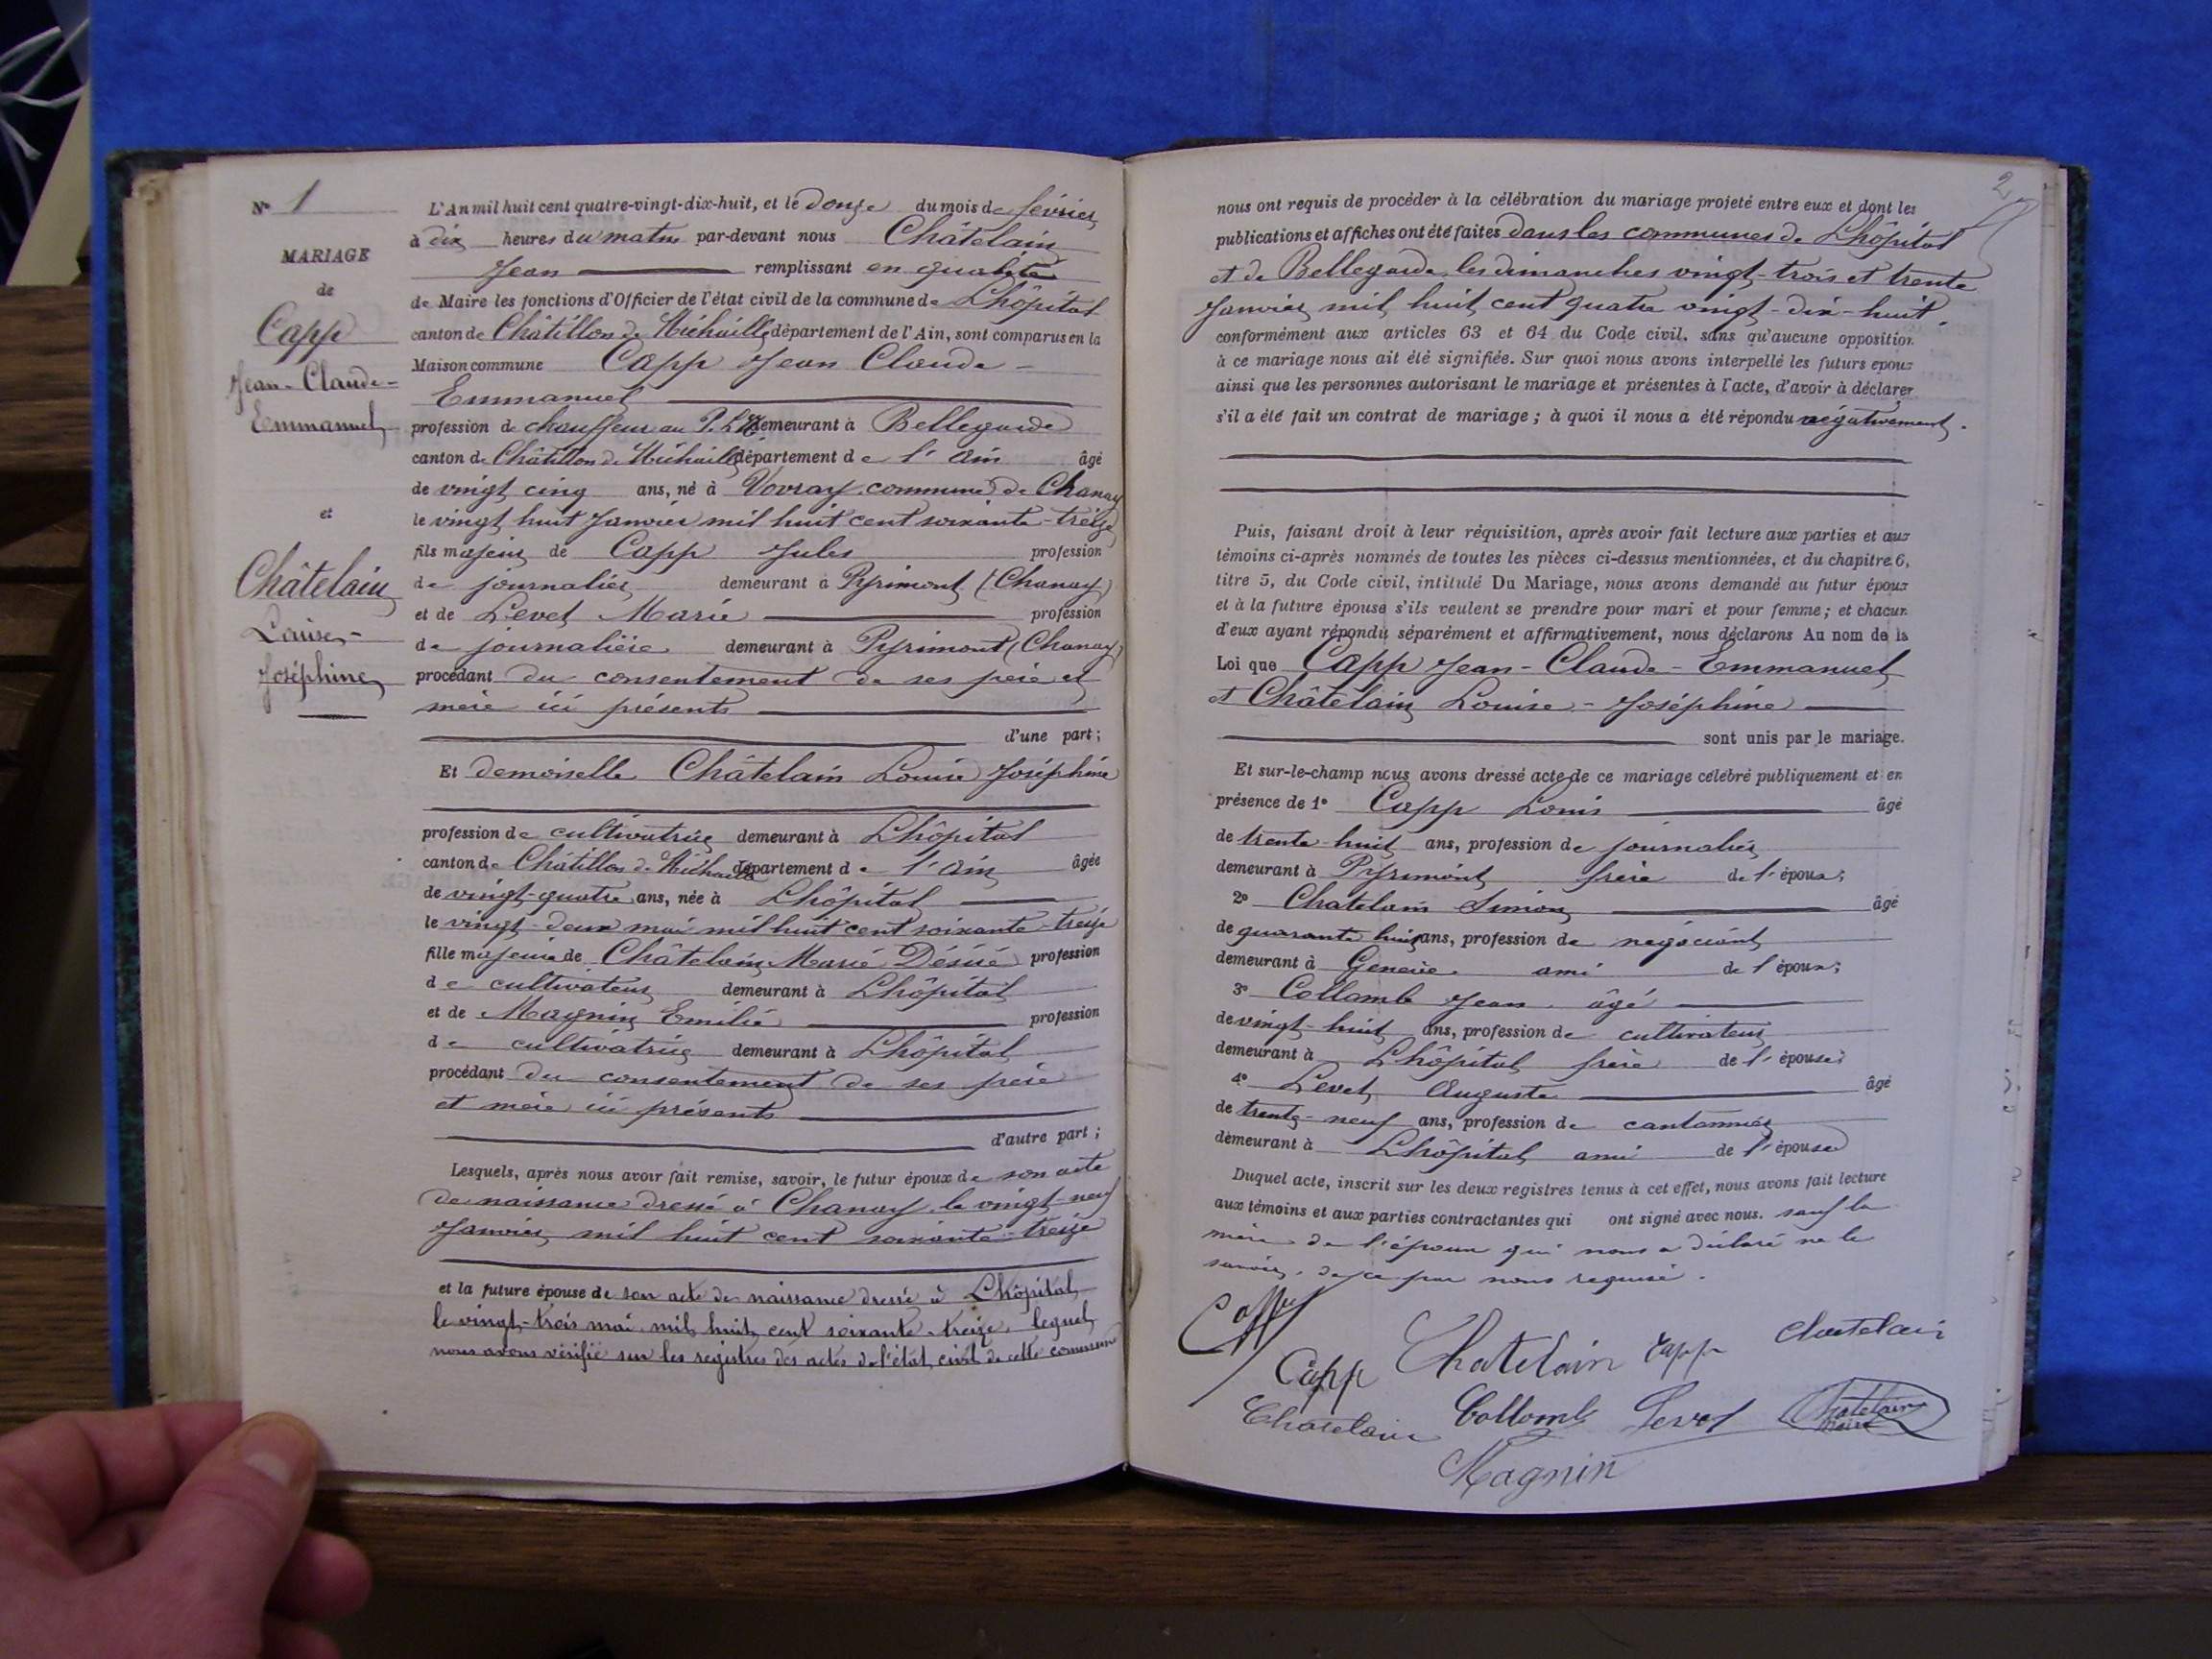 N° 1
MARIAGE
de
Capp
Jean-Claude-
Emmanuel
et
Châtelain
Louise-
Joséphine
L'An mil huit cent quatre-vingt-dix-huit, et le douze du mois de février
à dix heures du matin par-devant nous Châtelain
Jean remplissant en qualité
de Maire les fonctions d'Officier de l'état civil de la commune de Lhôpital
canton de Châtillon de Michaille département de l'Ain, sont comparus en la
Maison commune Capp Jean Claude-
Emmanuel
profession de chauffeur au P.L.M. demeurant à Bellegarde
canton de Châtillon de Michaille département de l'Ain âgé
de vingt cinq ans, né à Vovray commune de Chanay
le vingt huit Janvier mil huit cent soixante-treize
fils majeur de Capp Jules profession
de journalier demeurant à Pyrimont (Chanay)
et de Levet Marie profession
de journalière demeurant à Pyrimont (Chanay)
procédant du consentement de ses père et
mère ici présents
d'une part;
Et demoiselle Châtelain Louise Joséphine
profession de cultivatrice demeurant à Lhôpital
canton de Châtillon de Michaille département de l'Ain âgée
de vingt-quatre ans, née à Lhôpital
le vingt-deux mai mil huit cent soixante-treize
fille majeure de Châtelain Marie Désiré profession
de cultivateur demeurant à Lhôpital
et de Magnin Emilie profession
de cultivatrice demeurant à Lhôpital
procédant du consentement de ses père
et mère ici présents
d'autre part;
Lesquels, après nous avoir fait remise, savoir, le futur époux de son acte
de naissance dressé à Chanay le vingt-neuf
Janvier mil huit cent soixante-treize
et la future épouse de son acte de naissance dressé à Lhôpital
le vingt-trois mai mil huit cent soixante-treize lequel
nous avons vérifié sur les registres des actes de l'état civil de cette commune
2
nous ont requis de procéder à la célébration du mariage projeté entre eux et dont les
publications et affiches ont été faites dans les communes de Lhôpital
et de Bellegarde les dimanches vingt-trois et trente
Janvier mil huit cent quatre vingt-dix-huit,
conformément aux articles 63 et 64 du Code civil, sans qu'aucune opposition
à ce mariage nous ait été signifiée. Sur quoi nous avons interpellé les futurs époux
ainsi que les personnes autorisant le mariage et présentes à l'acte, d'avoir à déclarer
s'il a été fait un contrat de mariage; à quoi il nous a été répondu négativement.
Puis, faisant droit à leur réquisition, après avoir fait lecture aux parties et aux
témoins ci-après nommés de toutes les pièces ci-dessus mentionnées, et du chapitre 6,
titre 5, du Code civil, intitulé Du Mariage, nous avons demandé au futur époux
et à la future épouse s'ils veulent se prendre pour mari et pour femme; et chacun
d'eux ayant répondu séparément et affirmativement, nous déclarons Au nom de la
Loi que Capp Jean-Claude-Emmanuel
et Châtelain Louise-Joséphine
sont unis par le mariage.
Et sur-le-champ nous avons dressé acte de ce mariage célébré publiquement et en
présence de 1° Capp Louis âgé
de trente huit ans, profession de journalier
demeurant à Pyrimont frère de l'époux;
2° Chatelain Simon âgé
de quarante huit ans, profession de négociant
demeurant à Genève ami de l'époux;
3° Collomb Jean âgé
de vingt-huit ans, profession de cultivateur
demeurant à Lhôpital frère de l'épouse;
4° Levet Auguste âgé
de trente-neuf ans, profession de cantonnier
demeurant à Lhôpital ami de l'épouse
Duquel acte, inscrit sur les deux registres tenus à cet effet, nous avons fait lecture
aux témoins et aux parties contractantes qui ont signé avec nous. sauf la
mère de l'époux qui nous a déclaré ne le
savoir, de ce par nous requise.
Capp Chatelain Capp Chatelain
Chatelain Collomb Levet Chatelain
Maire
Magnin